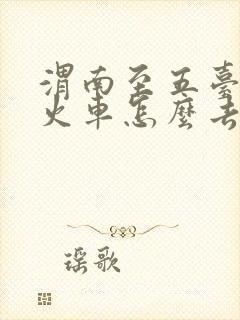 渭南至五臺
火车怎麼去
瑶歌